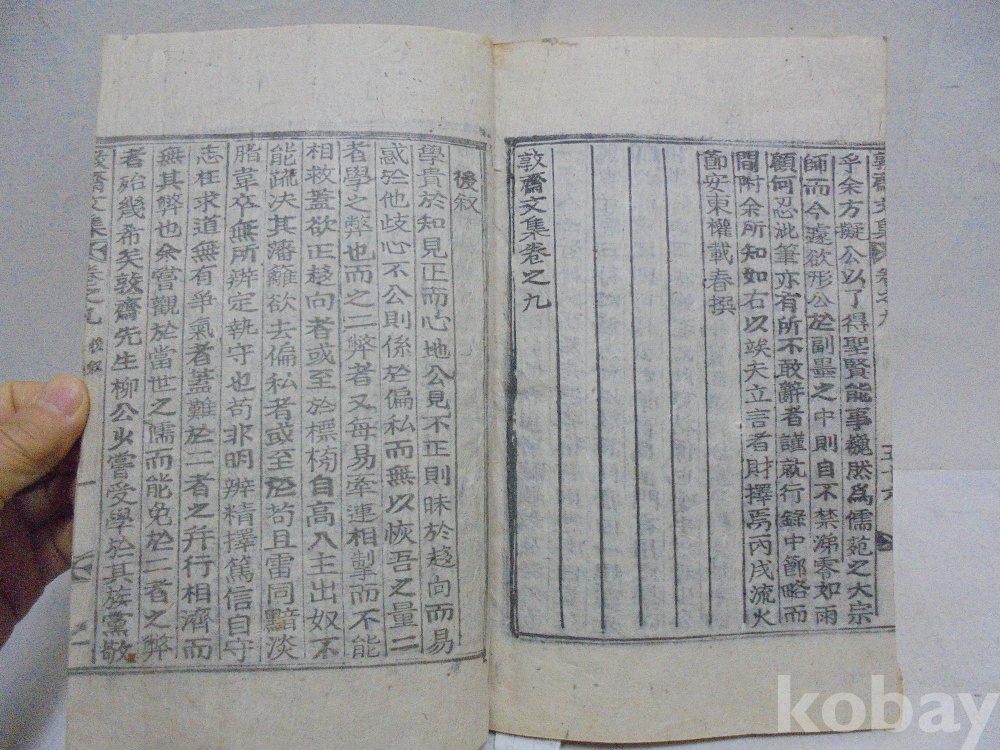 乎余方擬公以了得聖賢能事巍然爲儒苑之大宗
師而今遽欲形公於副墨之中則自不禁涕零如雨
顧何忍泚筆亦有所不敢辭者謹就行錄中節略而
間附余所知如右以竢夫立言者財擇焉丙戌流火
節安東權載春撰
敦齋文集卷之九
後叙
學貴於知見正而心地公見不正則昧於趍向而易
惑於他歧心不公則係於偏私而無以恢吾之量二
者學之弊也而之二弊者又每易牽連相掣而不能
相救蓋欲正趍向者或至於標榜自高入主出奴不
能疏决其藩籬欲去偏私者或至於苟且雷同黯淡
脂韋卒無所辨定執守也苟非明辨精擇篤信自守
志在求道無有爭氣者蓋難於二者之幷行相濟而
無其弊也余嘗觀於當世之儒而能免於二者之弊
者殆幾希矣敦齋先生柳公少嘗受學於其族黨敬
敦齋文集 卷之九 後叙
kobay